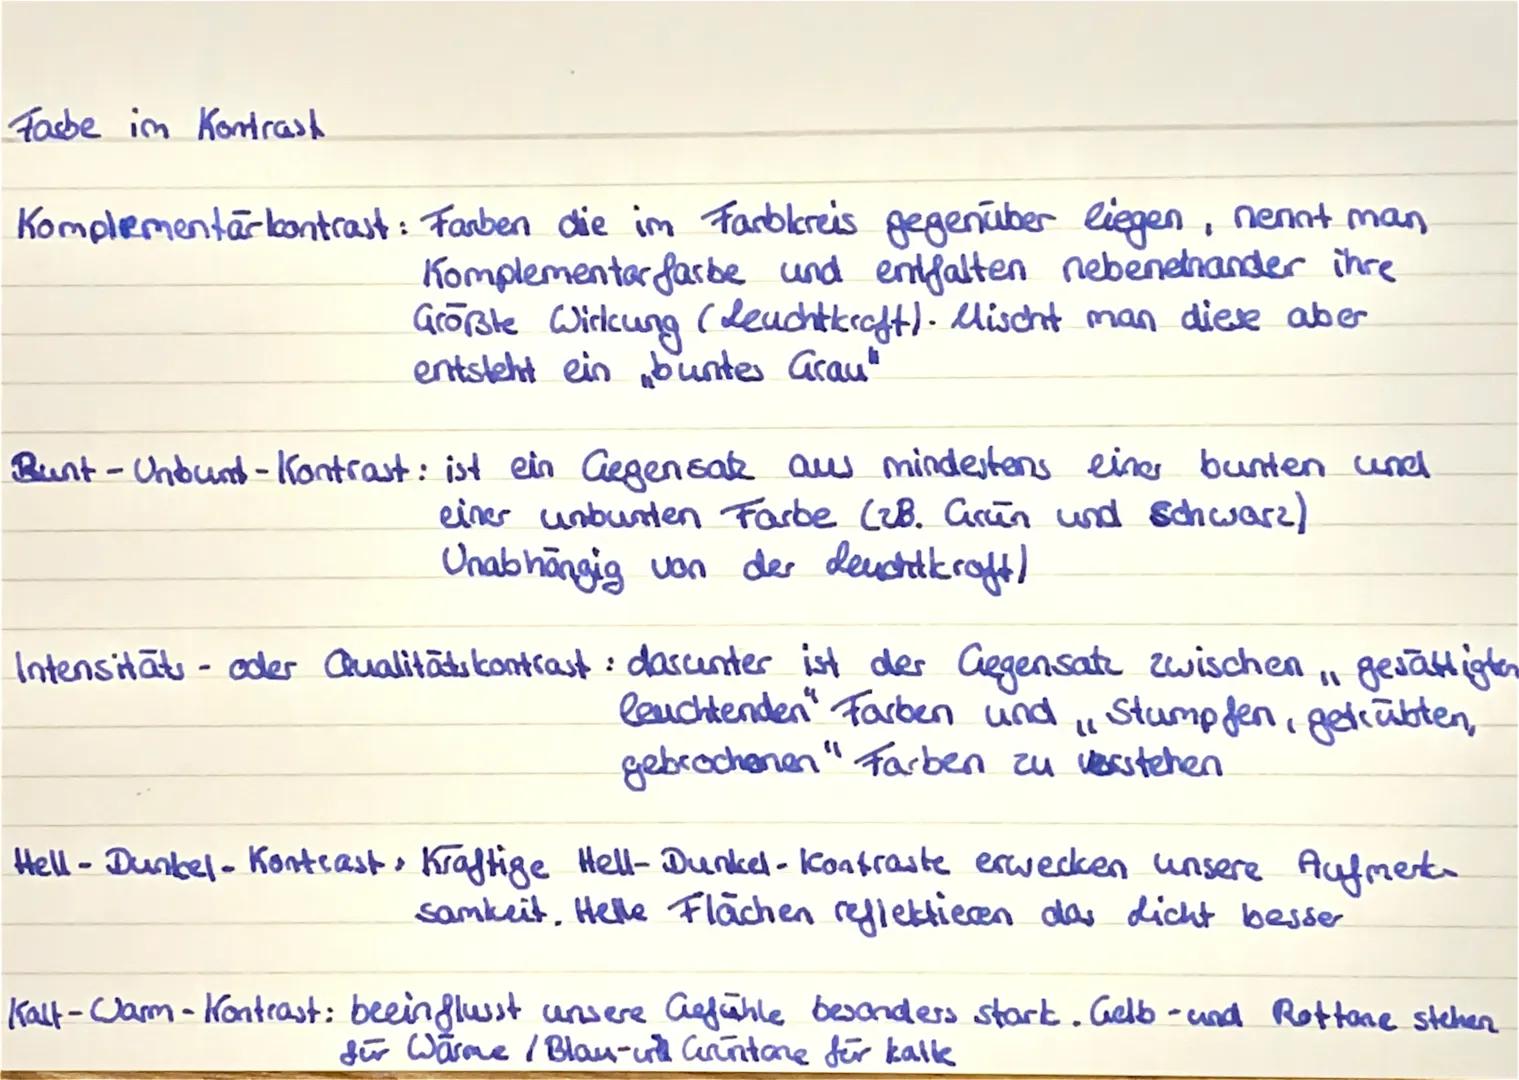 Farbe im Kontrast
Komplementärkontrast: Farben die im Farbkreis gegenüber liegen, nennt man
Komplementarfarbe und entfalten nebeneinander ihre
Größte Wirkung (Leuchtkraft). Mischt man diese aber
entsteht ein „buntes Grau"
Bunt-Unbunt-Kontrast: ist ein Gegensatz aus mindestens einer bunten und
einer unbunten Farbe (zB. Grün und Schwarz)
Unabhängig von der Leuchtkraft)
Intensitäts- oder Qualitätskontrast: darunter ist der Gegensatz zwischen „gesättigten
leuchtenden" Farben und „Stumpfen, getrübten,
gebrochenen" Farben zu verstehen
Hell-Dunkel-Kontrast: Kräftige Hell-Dunkel-Kontraste erwecken unsere Aufmerk-
samkeit. Helle Flächen reflektieren das Licht besser
Kalt-Warm-Kontrast: beeinflusst unsere Gefühle besonders stark. Gelb-und Rottöne stehen
für Wärme / Blau-und Grüntöne für kälte